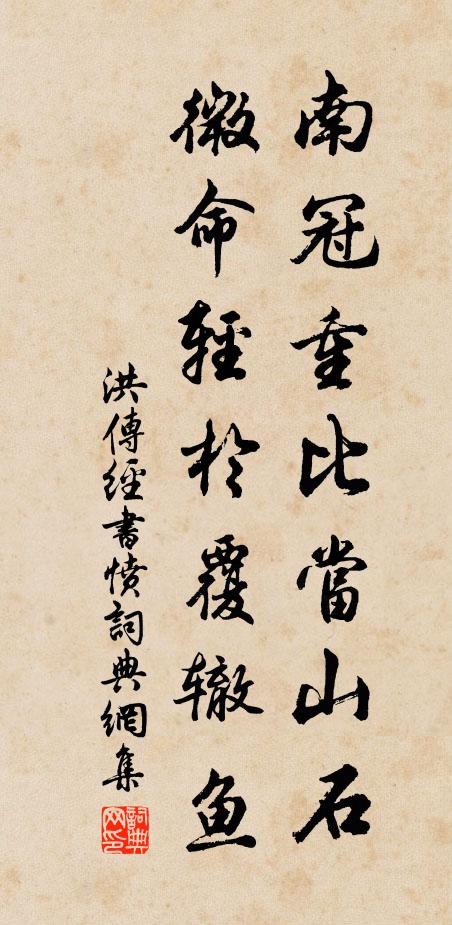 南冠重比當山石
微命輕於覆辙鱼
洪傳經書憤詞典網集
詞典网印